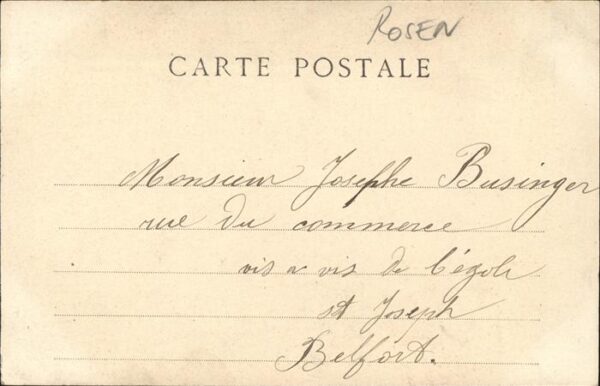 ROSEN
CARTE POSTALE
Monsieur Josephe Businger
rue du commerce
vis a vis de l'égole
st Joseph
Belfort.